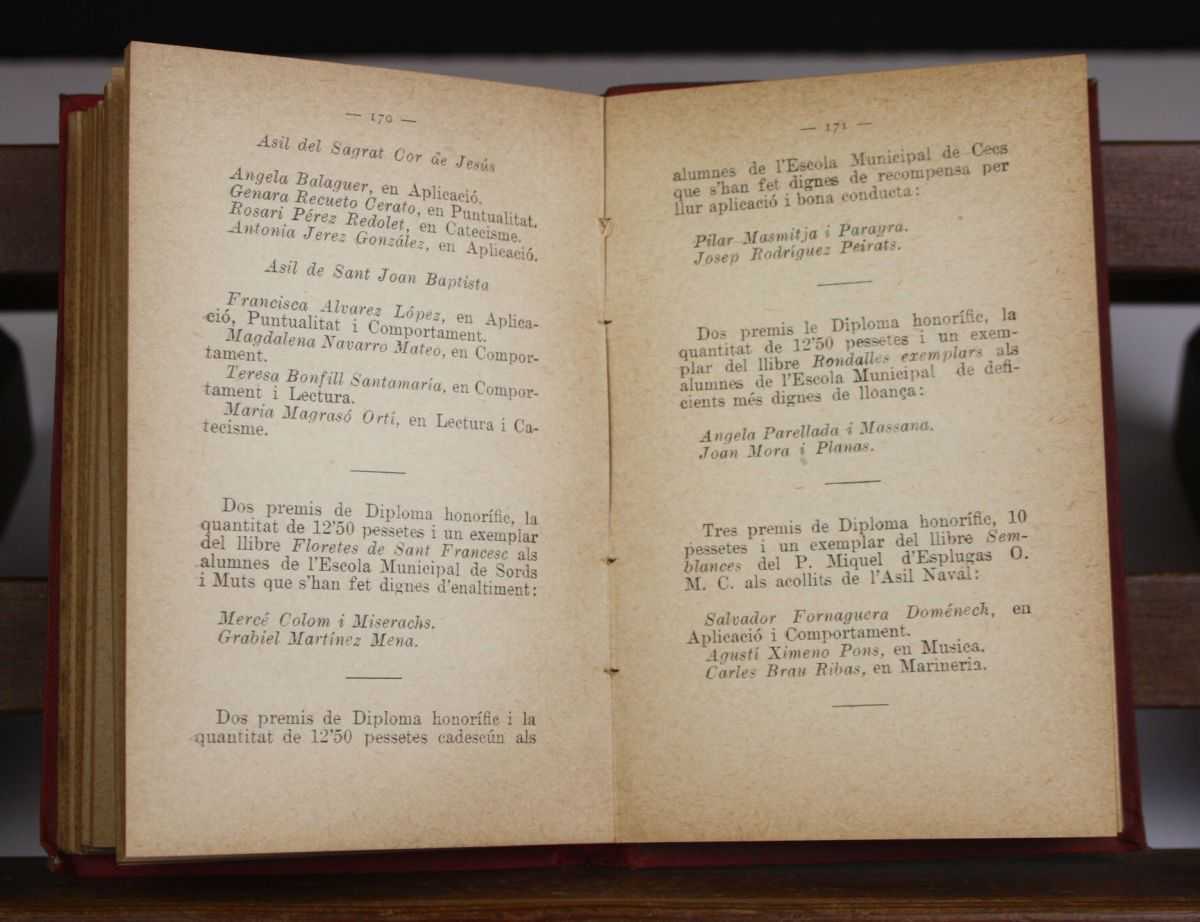 — 170 —
Asil del Sagrat Cor de Jesús
Angela Balaguer, en Aplicació.
Genara Recueto Cerato, en Puntualitat.
Rosari Pérez Redolet, en Catecisme.
Antonia Jerez González, en Aplicació.
Asil de Sant Joan Baptista
Francisca Alvarez López, en Aplica-
ció, Puntualitat i Comportament.
Magdalena Navarro Mateo, en Compor-
tament.
Teresa Bonfill Santamaría, en Compor-
tament i Lectura.
Maria Magrasó Ortí, en Lectura i Ca-
tecisme.
Dos premis de Diploma honorífic, la
quantitat de 12'50 pessetes i un exemplar
del llibre Floretes de Sant Francesc als
alumnes de l'Escola Municipal de Sords
i Muts que s'han fet dignes d'enaltiment:
Mercé Colom i Miserachs.
Grabiel Martínez Mena.
Dos premis de Diploma honorífic i la
quantitat de 12'50 pessetes cadescún als
— 171 —
alumnes de l'Escola Municipal de Cecs
que s'han fet dignes de recompensa per
llur aplicació i bona conducta:
Pilar Masmitja i Paragra.
Josep Rodríguez Peirats.
Dos premis le Diploma honorífic, la
quantitat de 12'50 pessetes i un exem-
plar del llibre Rondalles exemplars als
alumnes de l'Escola Municipal de defi-
cients més dignes de lloança:
Angela Parellada i Massana.
Joan Mora i Planas.
Tres premis de Diploma honorífic, 10
pessetes i un exemplar del llibre Sem-
blances del P. Miquel d'Esplugas O.
M. C. als acollits de l'Asil Naval:
Salvador Fornaguera Doménech, en
Aplicació i Comportament.
Agustí Ximeno Pons, en Musica.
Carles Brau Ribas, en Marineria.